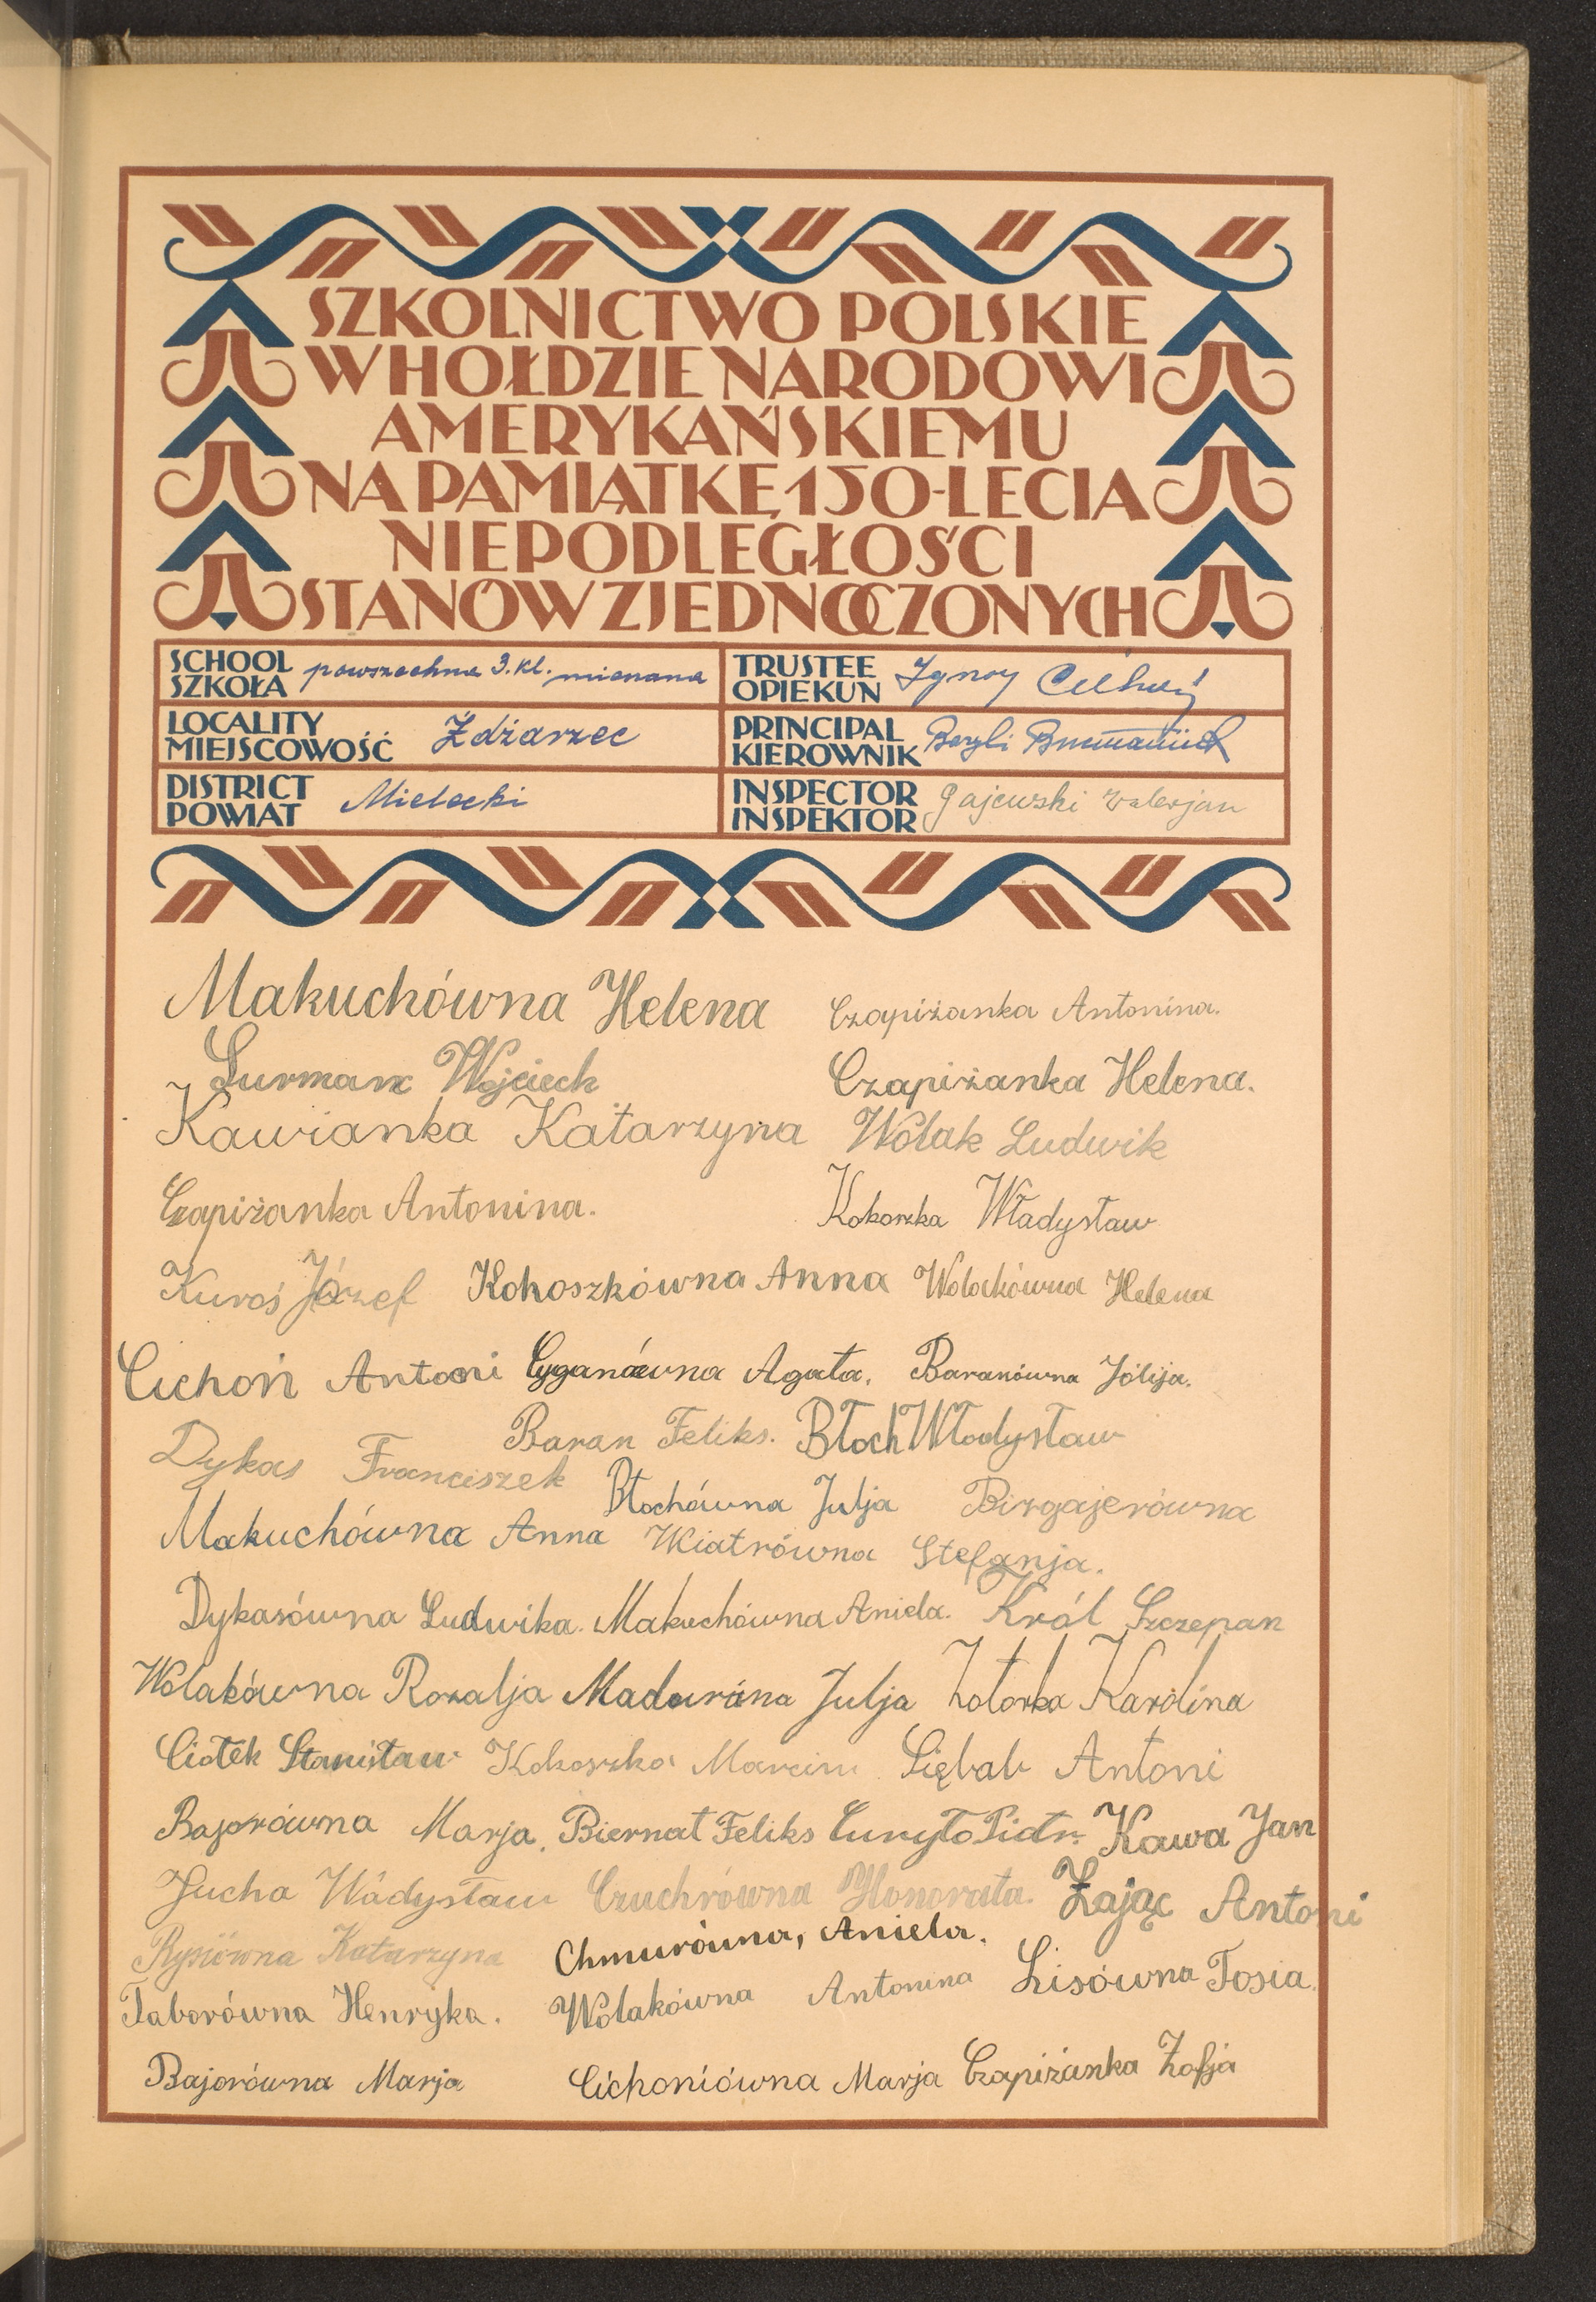 SZKOLNICTWO POLSKIE
W HOŁDZIE NARODOWI
AMERYKAŃSKIEMU
NA PAMIĄTKĘ 150-LECIA
NIEPODLEGŁOŚCI
STANÓW ZJEDNOCZONYCH
SCHOOL
SZKOŁA powszechna 3. kl. mieszana
TRUSTEE
OPIEKUN Ignacy Cichoń
LOCALITY
MIEJSCOWOŚĆ Żdżarzec
PRINCIPAL
KIEROWNIK
DISTRICT
POWIAT Mielecki
INSPECTOR
INSPEKTOR Gajewski Walerjan
Makuchówna Helena Czapiżanka Antonina.
Surman Wojciech Czapiżanka Helena.
Kawianka Katarzyna Wolak Ludwik
Czapiżanka Antonina. Kokoszka Władysław
Kuroś Józef Kokoszkówna Anna Wolakówna Helena
Cichoń Antoni Cyganówna Agata. Baranówna Jólija.
Baran Feliks. Błoch Włodysław
Dykas Franciszek Błochówna Julja Birgajerówna
Makuchówna Anna Wiatrówna Stefanja.
Dykasówna Ludwika. Makuchówna Aniela. Król Szczepan
Wolakówna Rozalja Madurówna Julja Zotorka Karolina
Ciołek Stanisław Kokoszka Marcin Siębab Antoni
Bajorówna Marja. Biernat Feliks Curyło Piotr. Kawa Jan
Jucha Wádysław Czuchrówna Honorata. Zając Antoni
Rysiówna Katarzyna Chmurówna, Aniela.
Taborówna Henryka. Wolakówna Antonina Lisówna Tosia.
Bajorówna Marja Cichoniówna Marja Czapiżanka Zofja